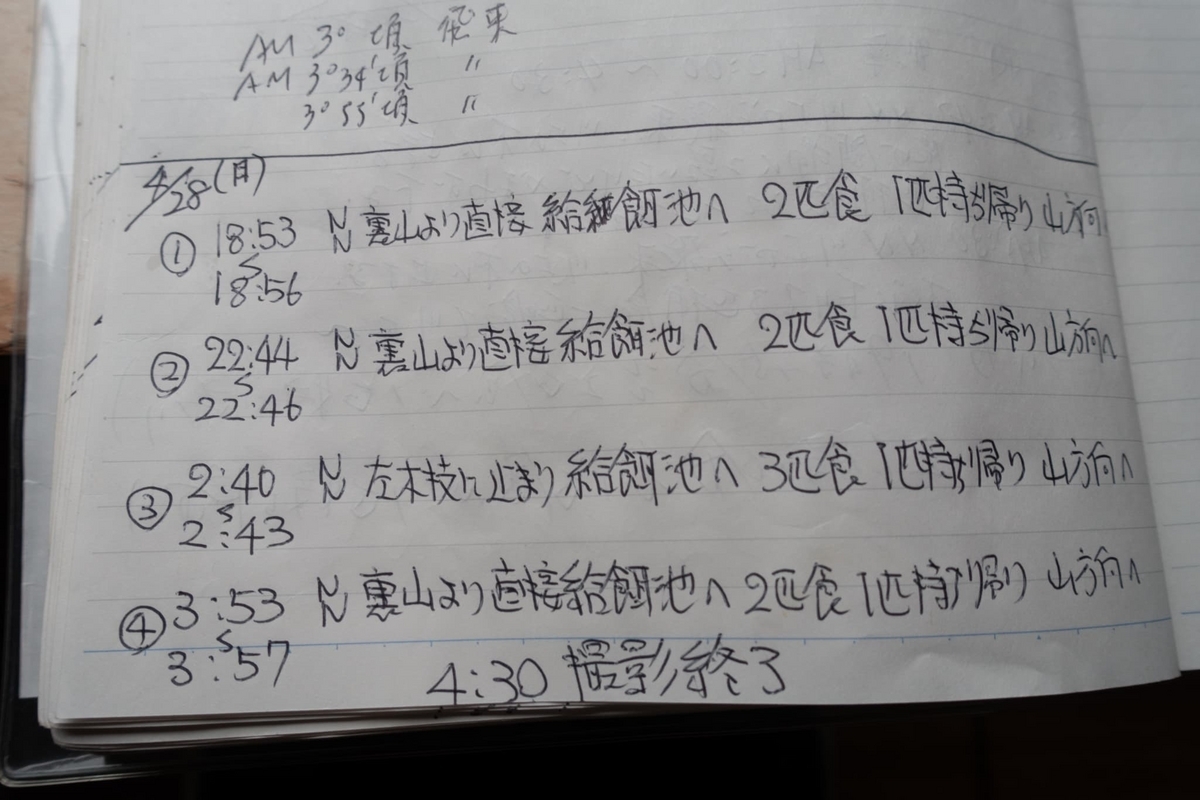 AM 3° 頃 飛来
AM 3°34'頃 〃
3°55'頃 〃
4/28(日)
① 18:53 NN 裏山より直接 給餌池へ 2匹食 1匹持ち帰り 山方向
〜
18:56
② 22:44 NN 裏山より直接給餌池へ 2匹食 1匹持ち帰り 山方向へ
〜
22:46
③ 2:40 NN 左木枝に止まり 給餌池へ 3匹食 1匹持ち帰り 山方向へ
〜
2:43
④ 3:53 NN 裏山より直接給餌池へ 2匹食 1匹持ち帰り 山方向へ
〜
3:57
4:30 撮影終了